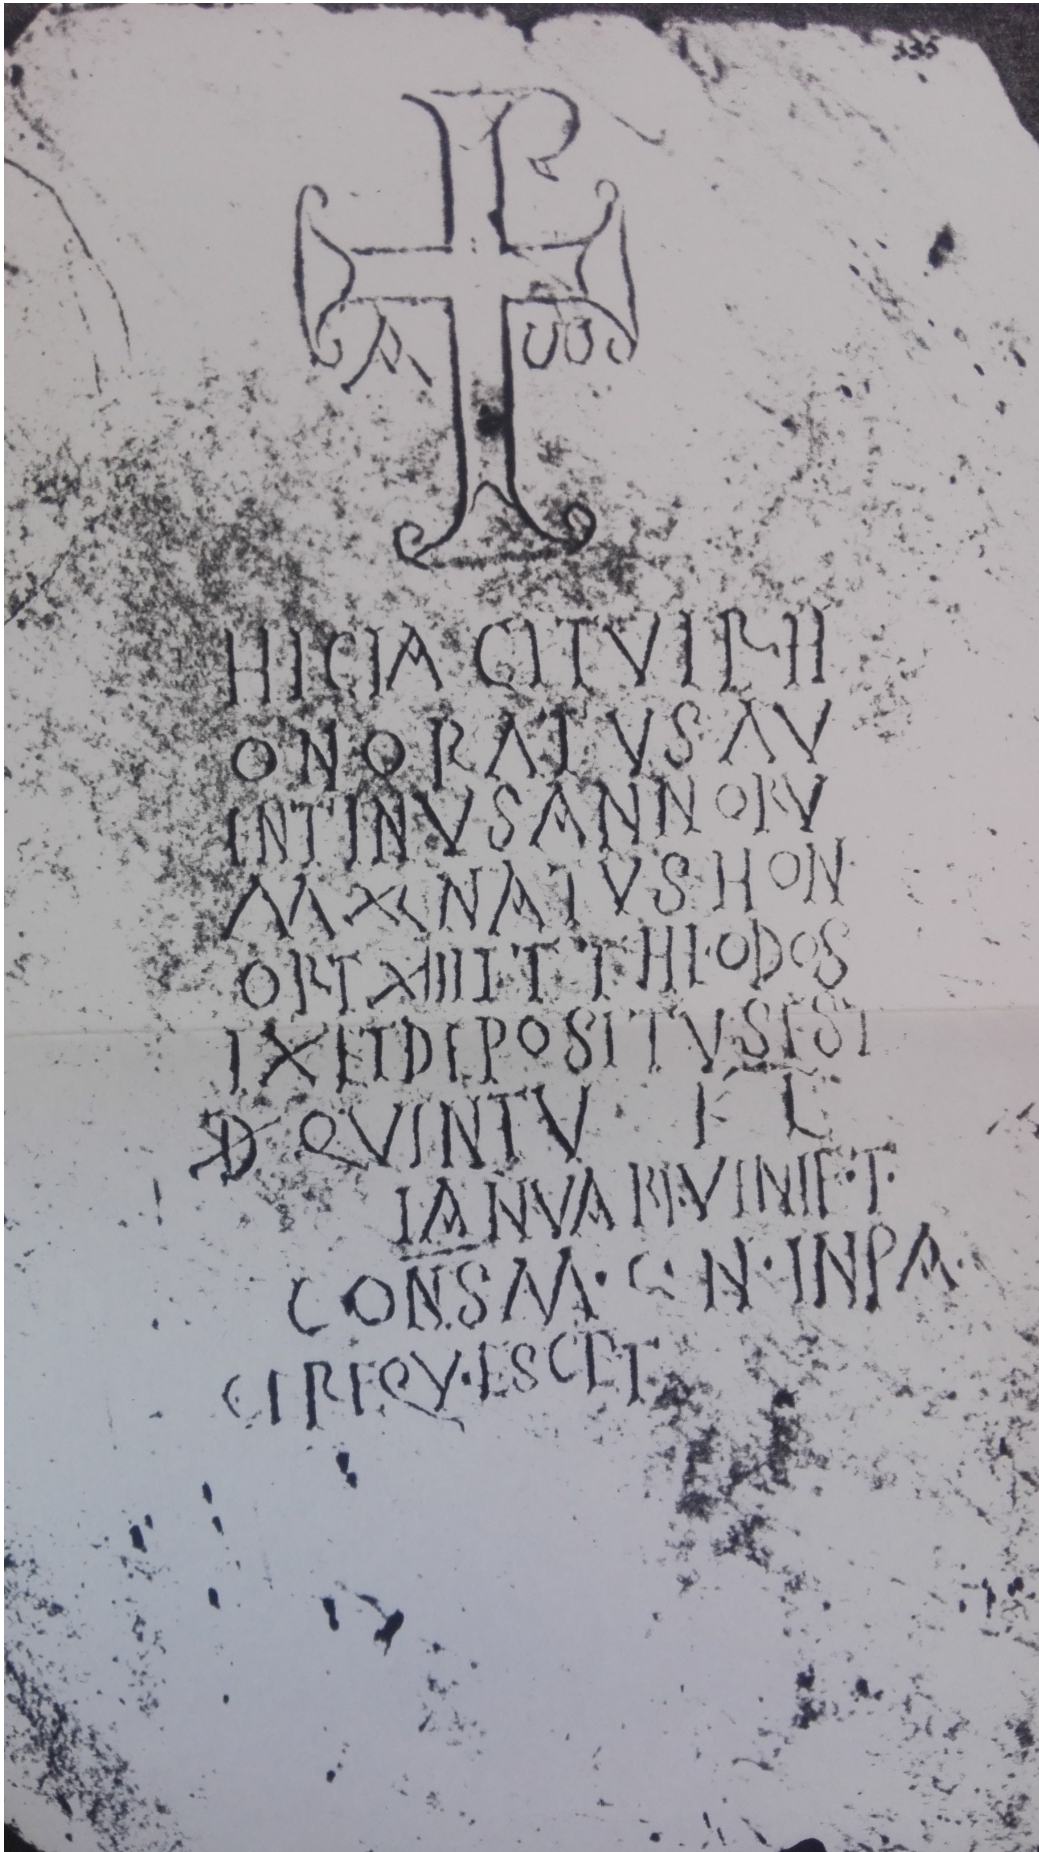 335
A ω
HIC IACIT VIR H
ONORATUS AU
INTINVS ANNORV
M XL NATVS HON
OR T XIII ET THEODOS
IX ET DEPOSITVS EST
D QVINTV KL
IANVAR VI INIET
CONS M C N IN PA
CE REQVESCET